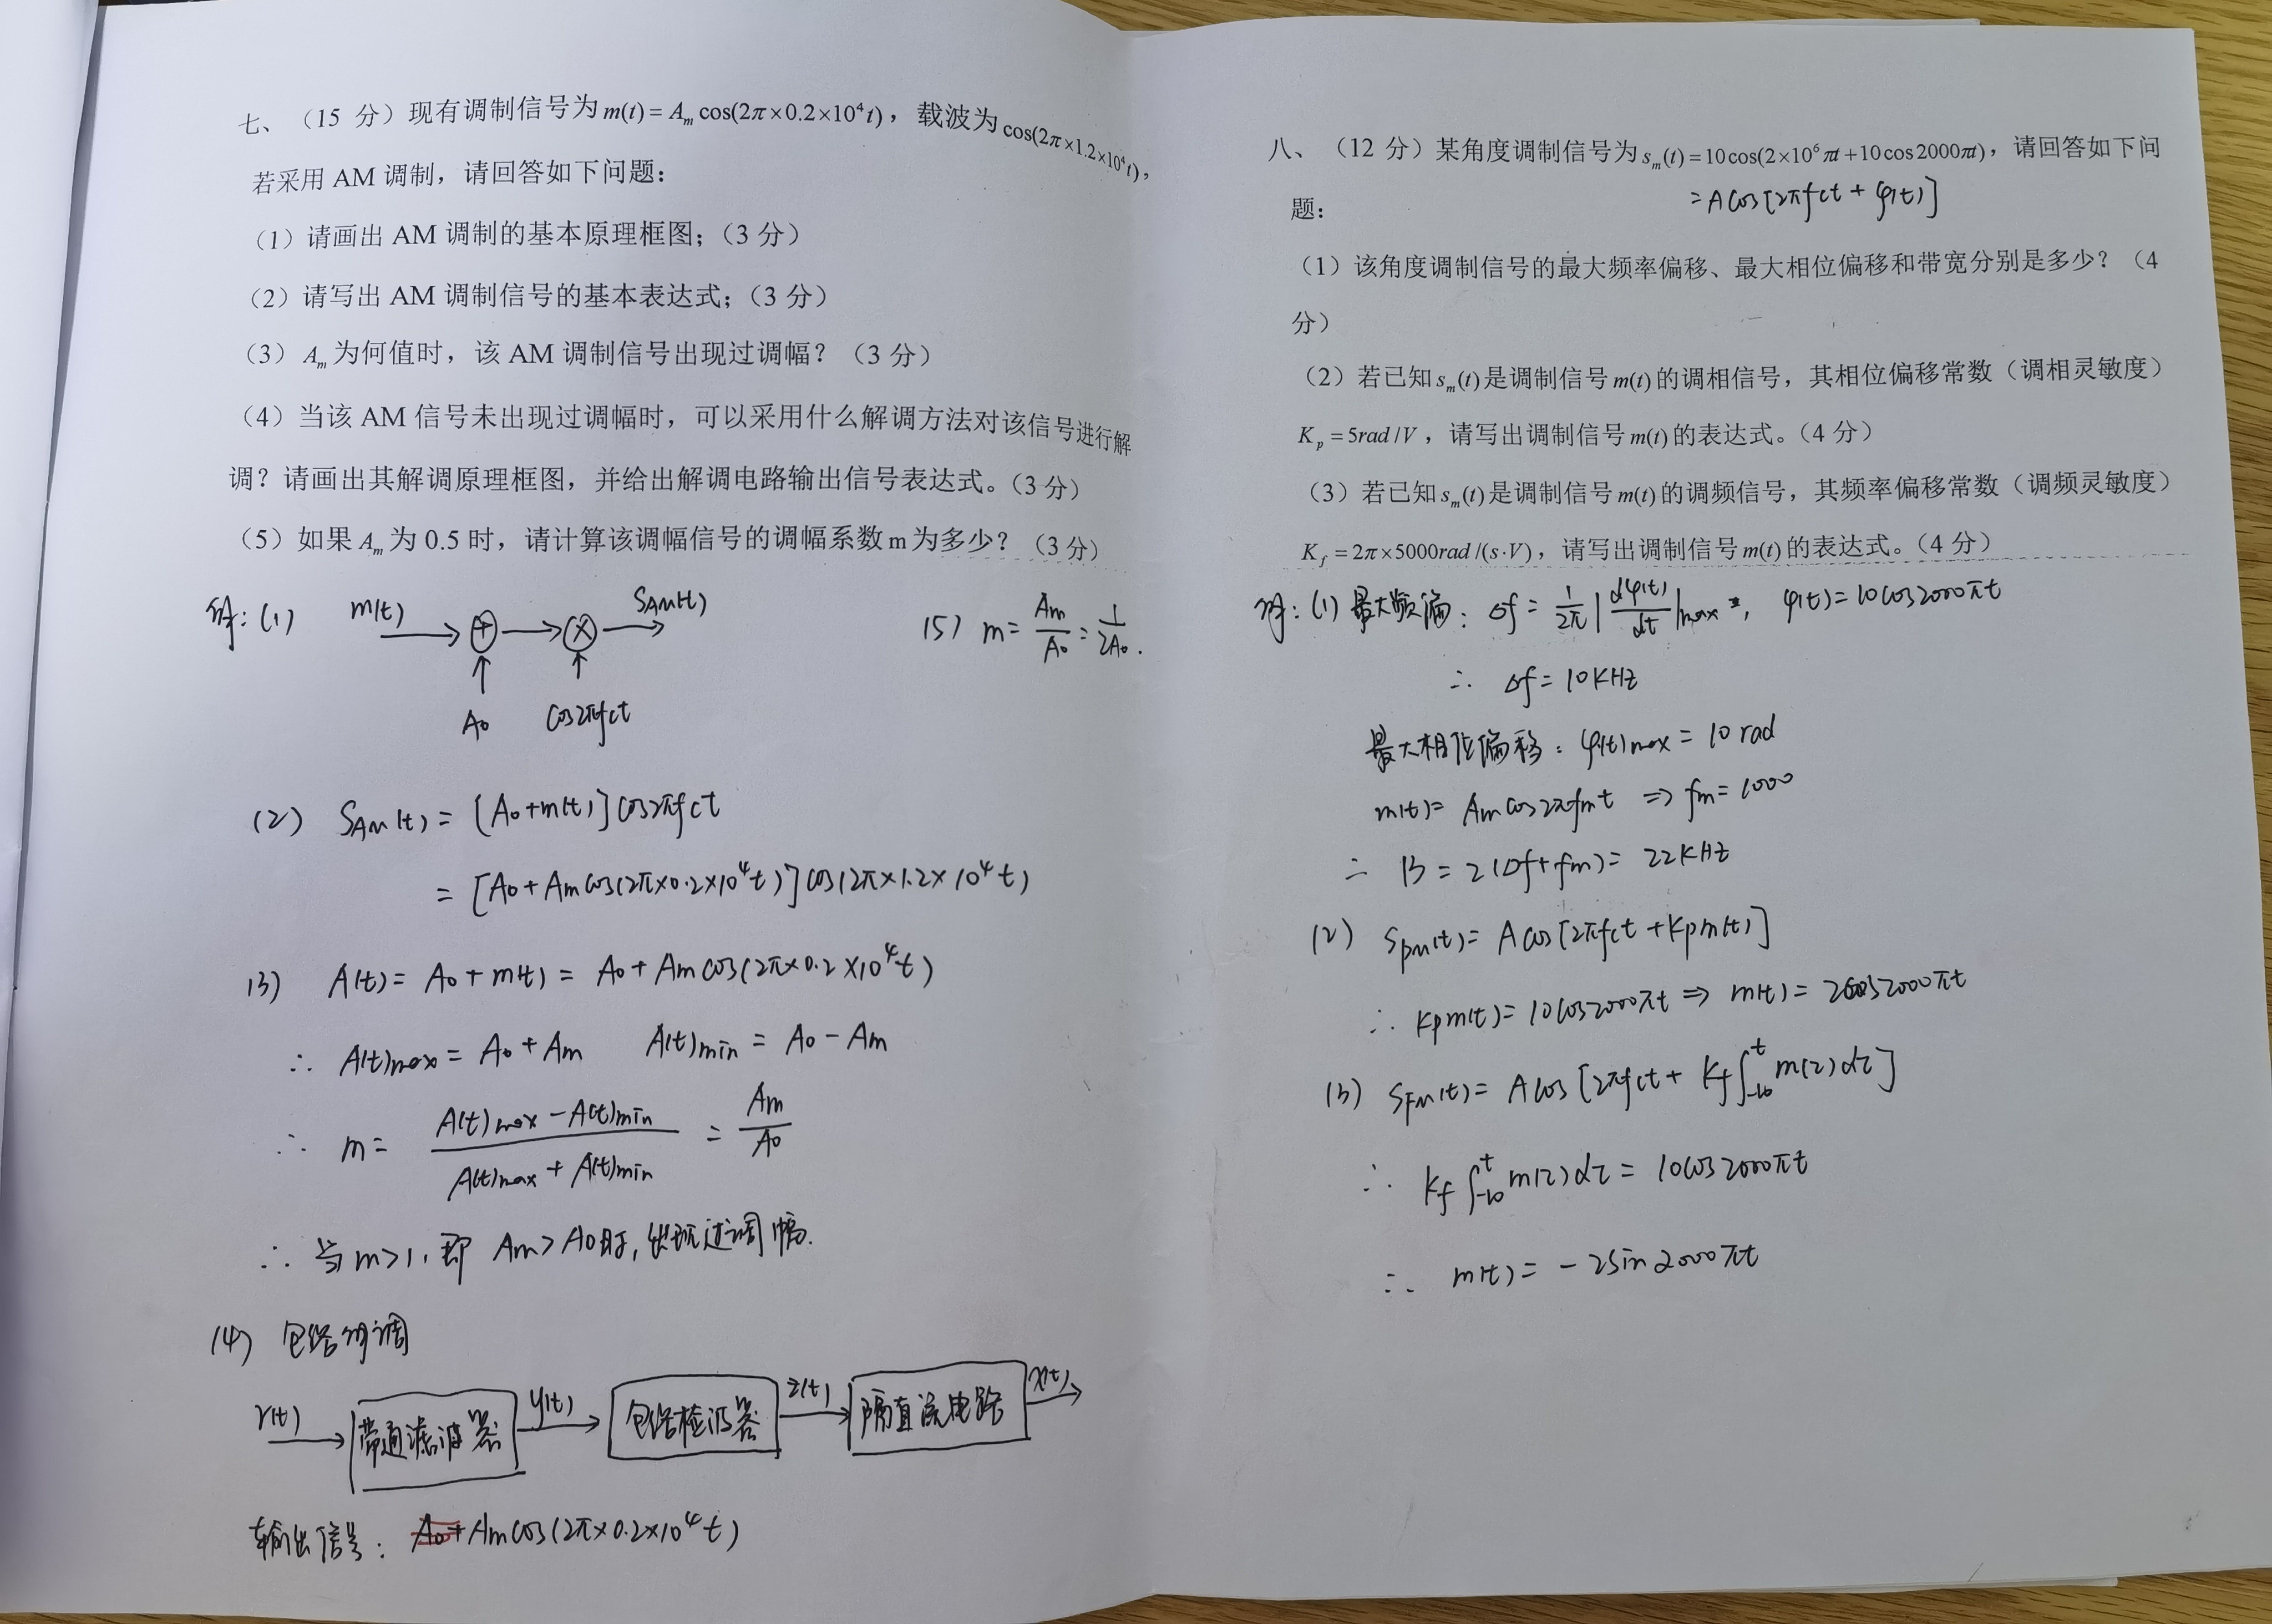 七、（15 分）现有调制信号为 m(t) = A_m cos(2π×0.2×10⁴t)，载波为 cos(2π×1.2×10⁴t)，
若采用 AM 调制，请回答如下问题：
（1）请画出 AM 调制的基本原理框图；（3 分）
（2）请写出 AM 调制信号的基本表达式；（3 分）
（3）A_m 为何值时，该 AM 调制信号出现过调幅？（3 分）
（4）当该 AM 信号未出现过调幅时，可以采用什么解调方法对该信号进行解
调？请画出其解调原理框图，并给出解调电路输出信号表达式。（3 分）
（5）如果 A_m 为 0.5 时，请计算该调幅信号的调幅系数 m 为多少？（3 分）
解：(1) m(t) + × S_AM(t)
A₀ cos2πfct
(5) m = Am/A₀ = 1/2A₀.
(2) S_AM(t) = [A₀+m(t)]cos2πfct
= [A₀+Amcos(2π×0.2×10⁴t)]cos(2π×1.2×10⁴t)
(3) A(t) = A₀ + m(t) = A₀ + Amcos(2π×0.2×10⁴t)
∴ A(t)max = A₀ + Am A(t)min = A₀ − Am
∴ m = (A(t)max − A(t)min)/(A(t)max + A(t)min) = Am/A₀
∴ 当 m>1, 即 Am>A₀时, 出现过调幅.
(4) 包络解调
r(t) 带通滤波器 y(t) 包络检波器 z(t) 隔直流电路 x(t)
输出信号： A₀+ Amcos(2π×0.2×10⁴t)
八、（12 分）某角度调制信号为 s_m(t) = 10cos(2×10⁶πt+10cos2000πt)，请回答如下问
= Acos[2πfct + φ(t)]
题：
（1）该角度调制信号的最大频率偏移、最大相位偏移和带宽分别是多少？（4
分）
（2）若已知 s_m(t) 是调制信号 m(t) 的调相信号，其相位偏移常数（调相灵敏度）
K_p = 5rad/V，请写出调制信号 m(t) 的表达式。（4 分）
（3）若已知 s_m(t) 是调制信号 m(t) 的调频信号，其频率偏移常数（调频灵敏度）
K_f = 2π×5000rad/(s·V)，请写出调制信号 m(t) 的表达式。（4 分）
解：(1) 最大频偏： Δf = 1/2π |dφ(t)/dt|max , φ(t) = 10cos2000πt
∴ Δf = 10KHz
最大相位偏移： φ(t)max = 10 rad
m(t) = Amcos2πfmt ⇒ fm = 1000
∴ B = 2(Δf+fm) = 22KHz
(2) S_PM(t) = Acos[2πfct + Kpm(t)]
∴ Kpm(t) = 10cos2000πt ⇒ m(t) = 2cos2000πt
(3) S_FM(t) = Acos[2πfct + Kf∫_{-∞}^{t} m(τ)dτ]
∴ Kf∫_{-∞}^{t} m(τ)dτ = 10cos2000πt
∴ m(t) = −2sin2000πt